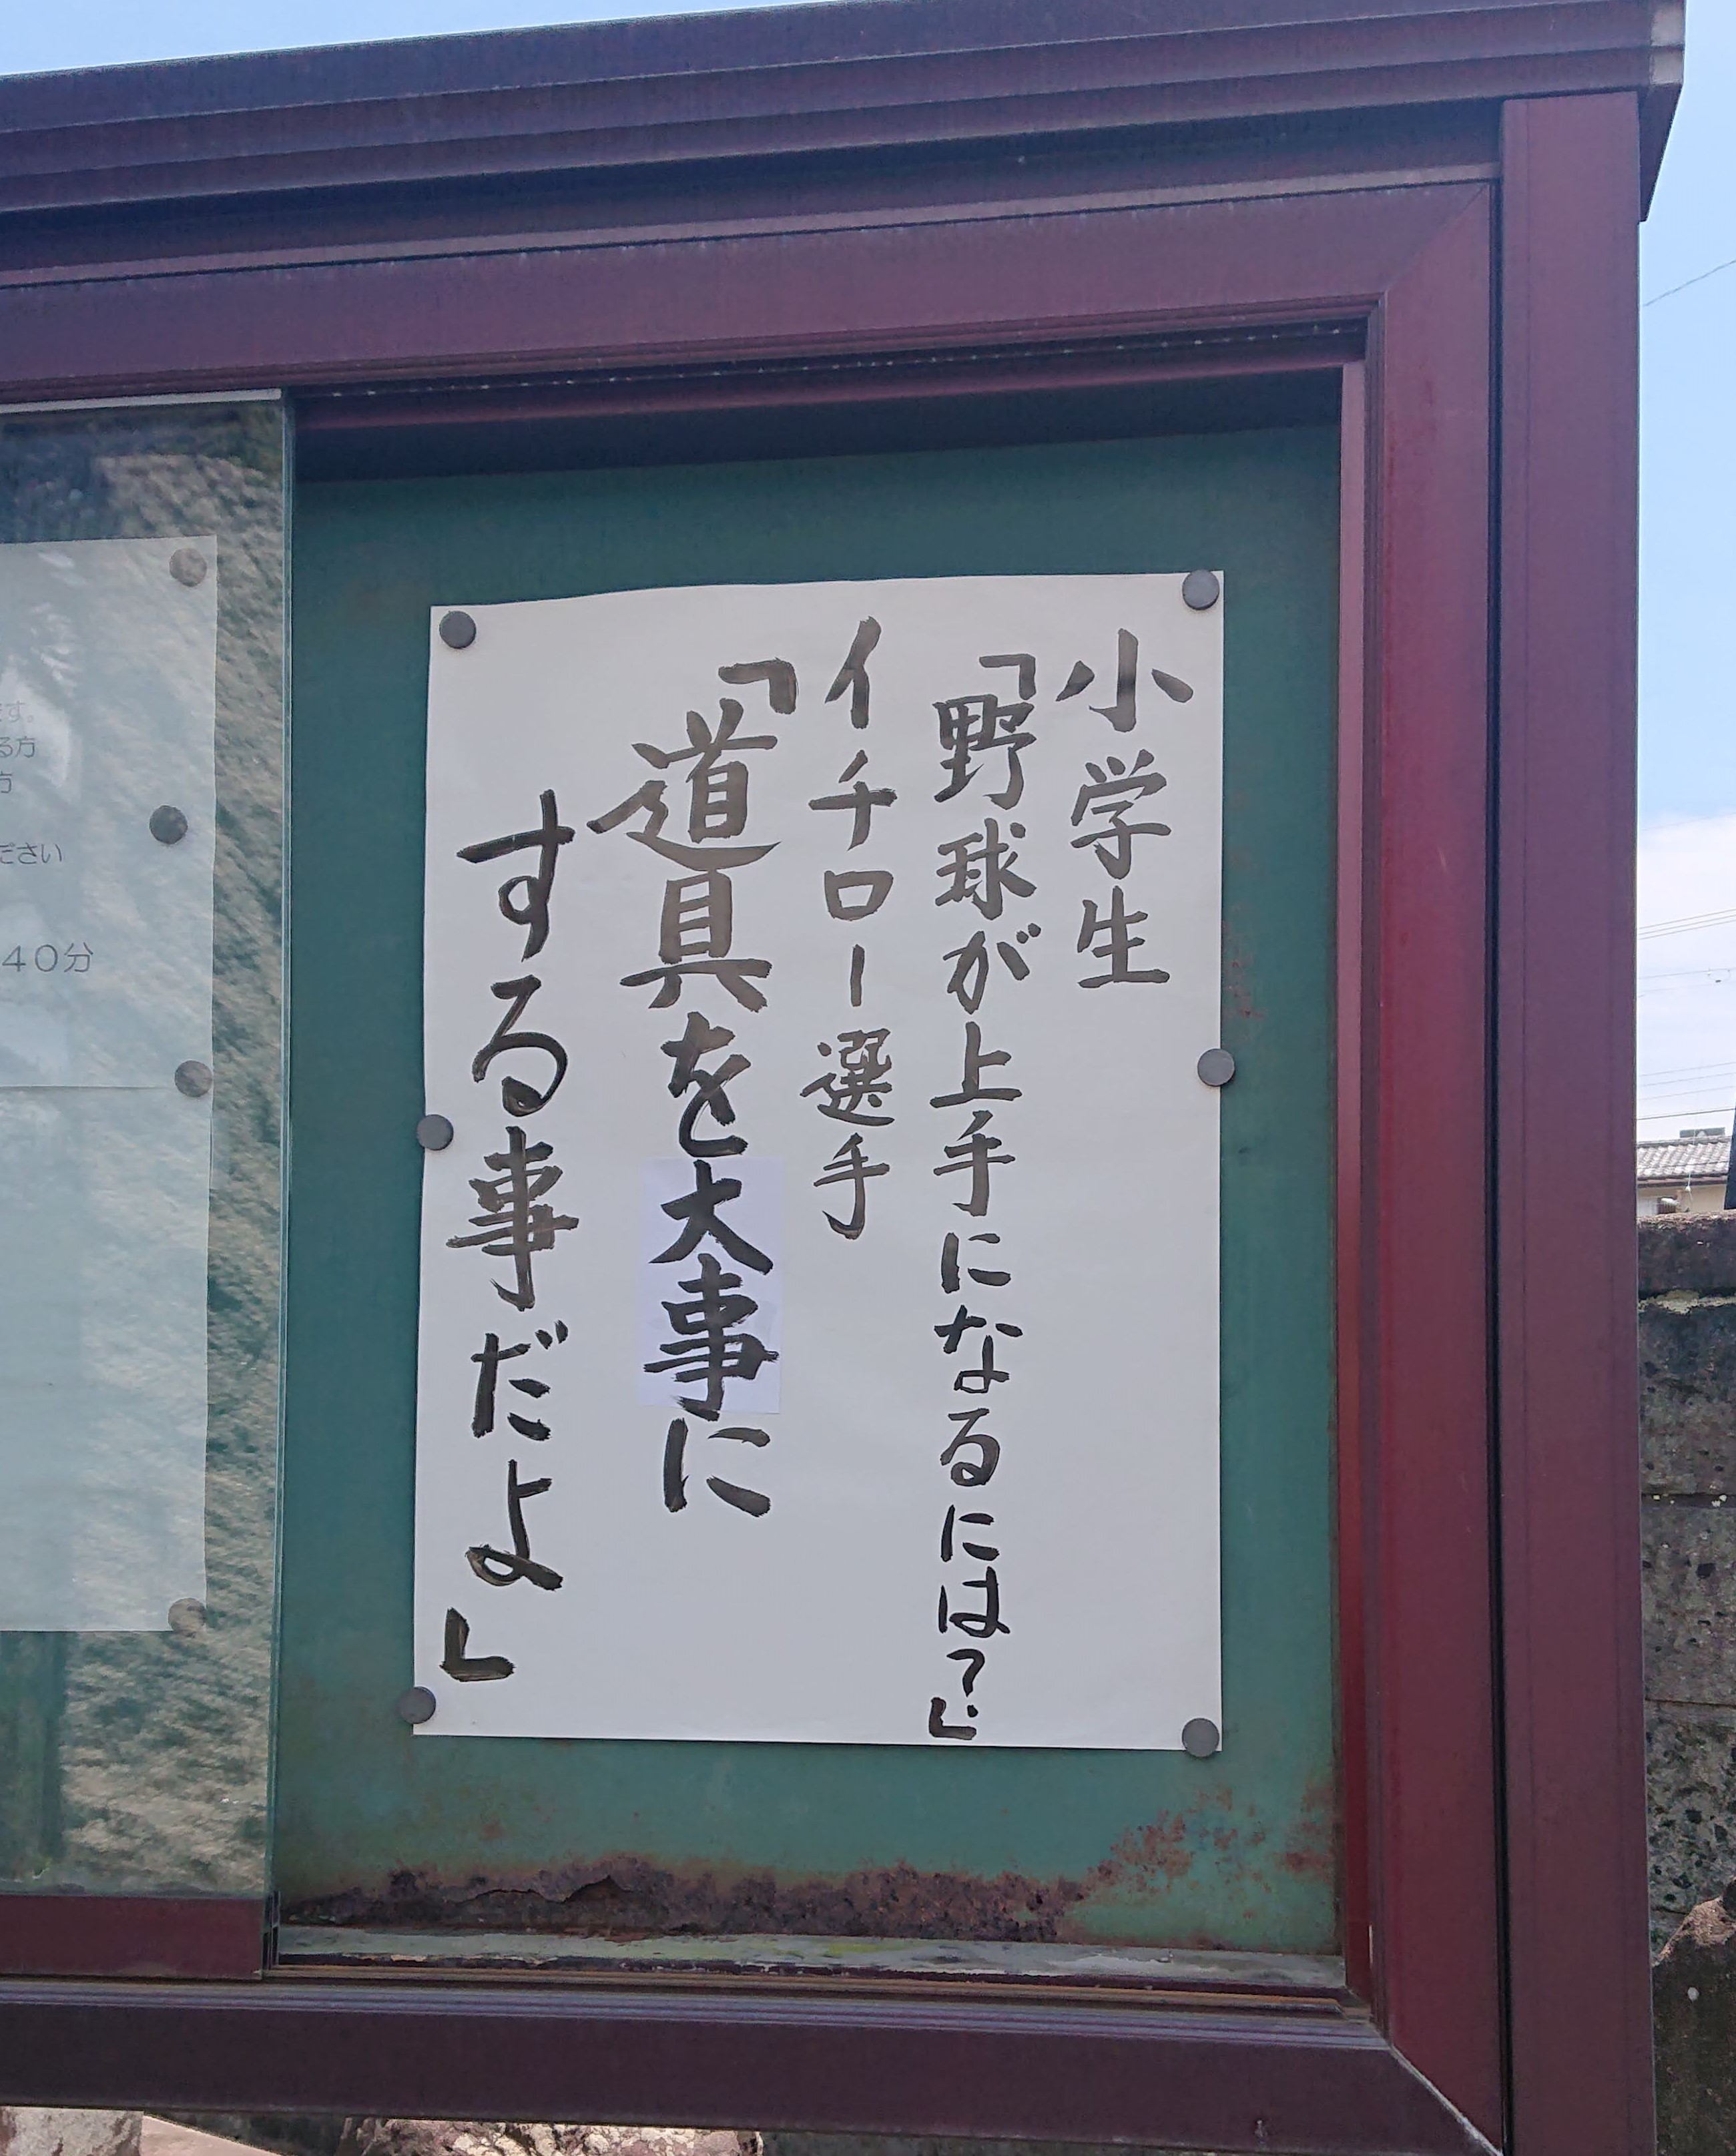 小学生
「野球が上手になるには?」
イチロー選手
「道具を大事に
する事だよ」
ます。
る方
方
ださい
40分